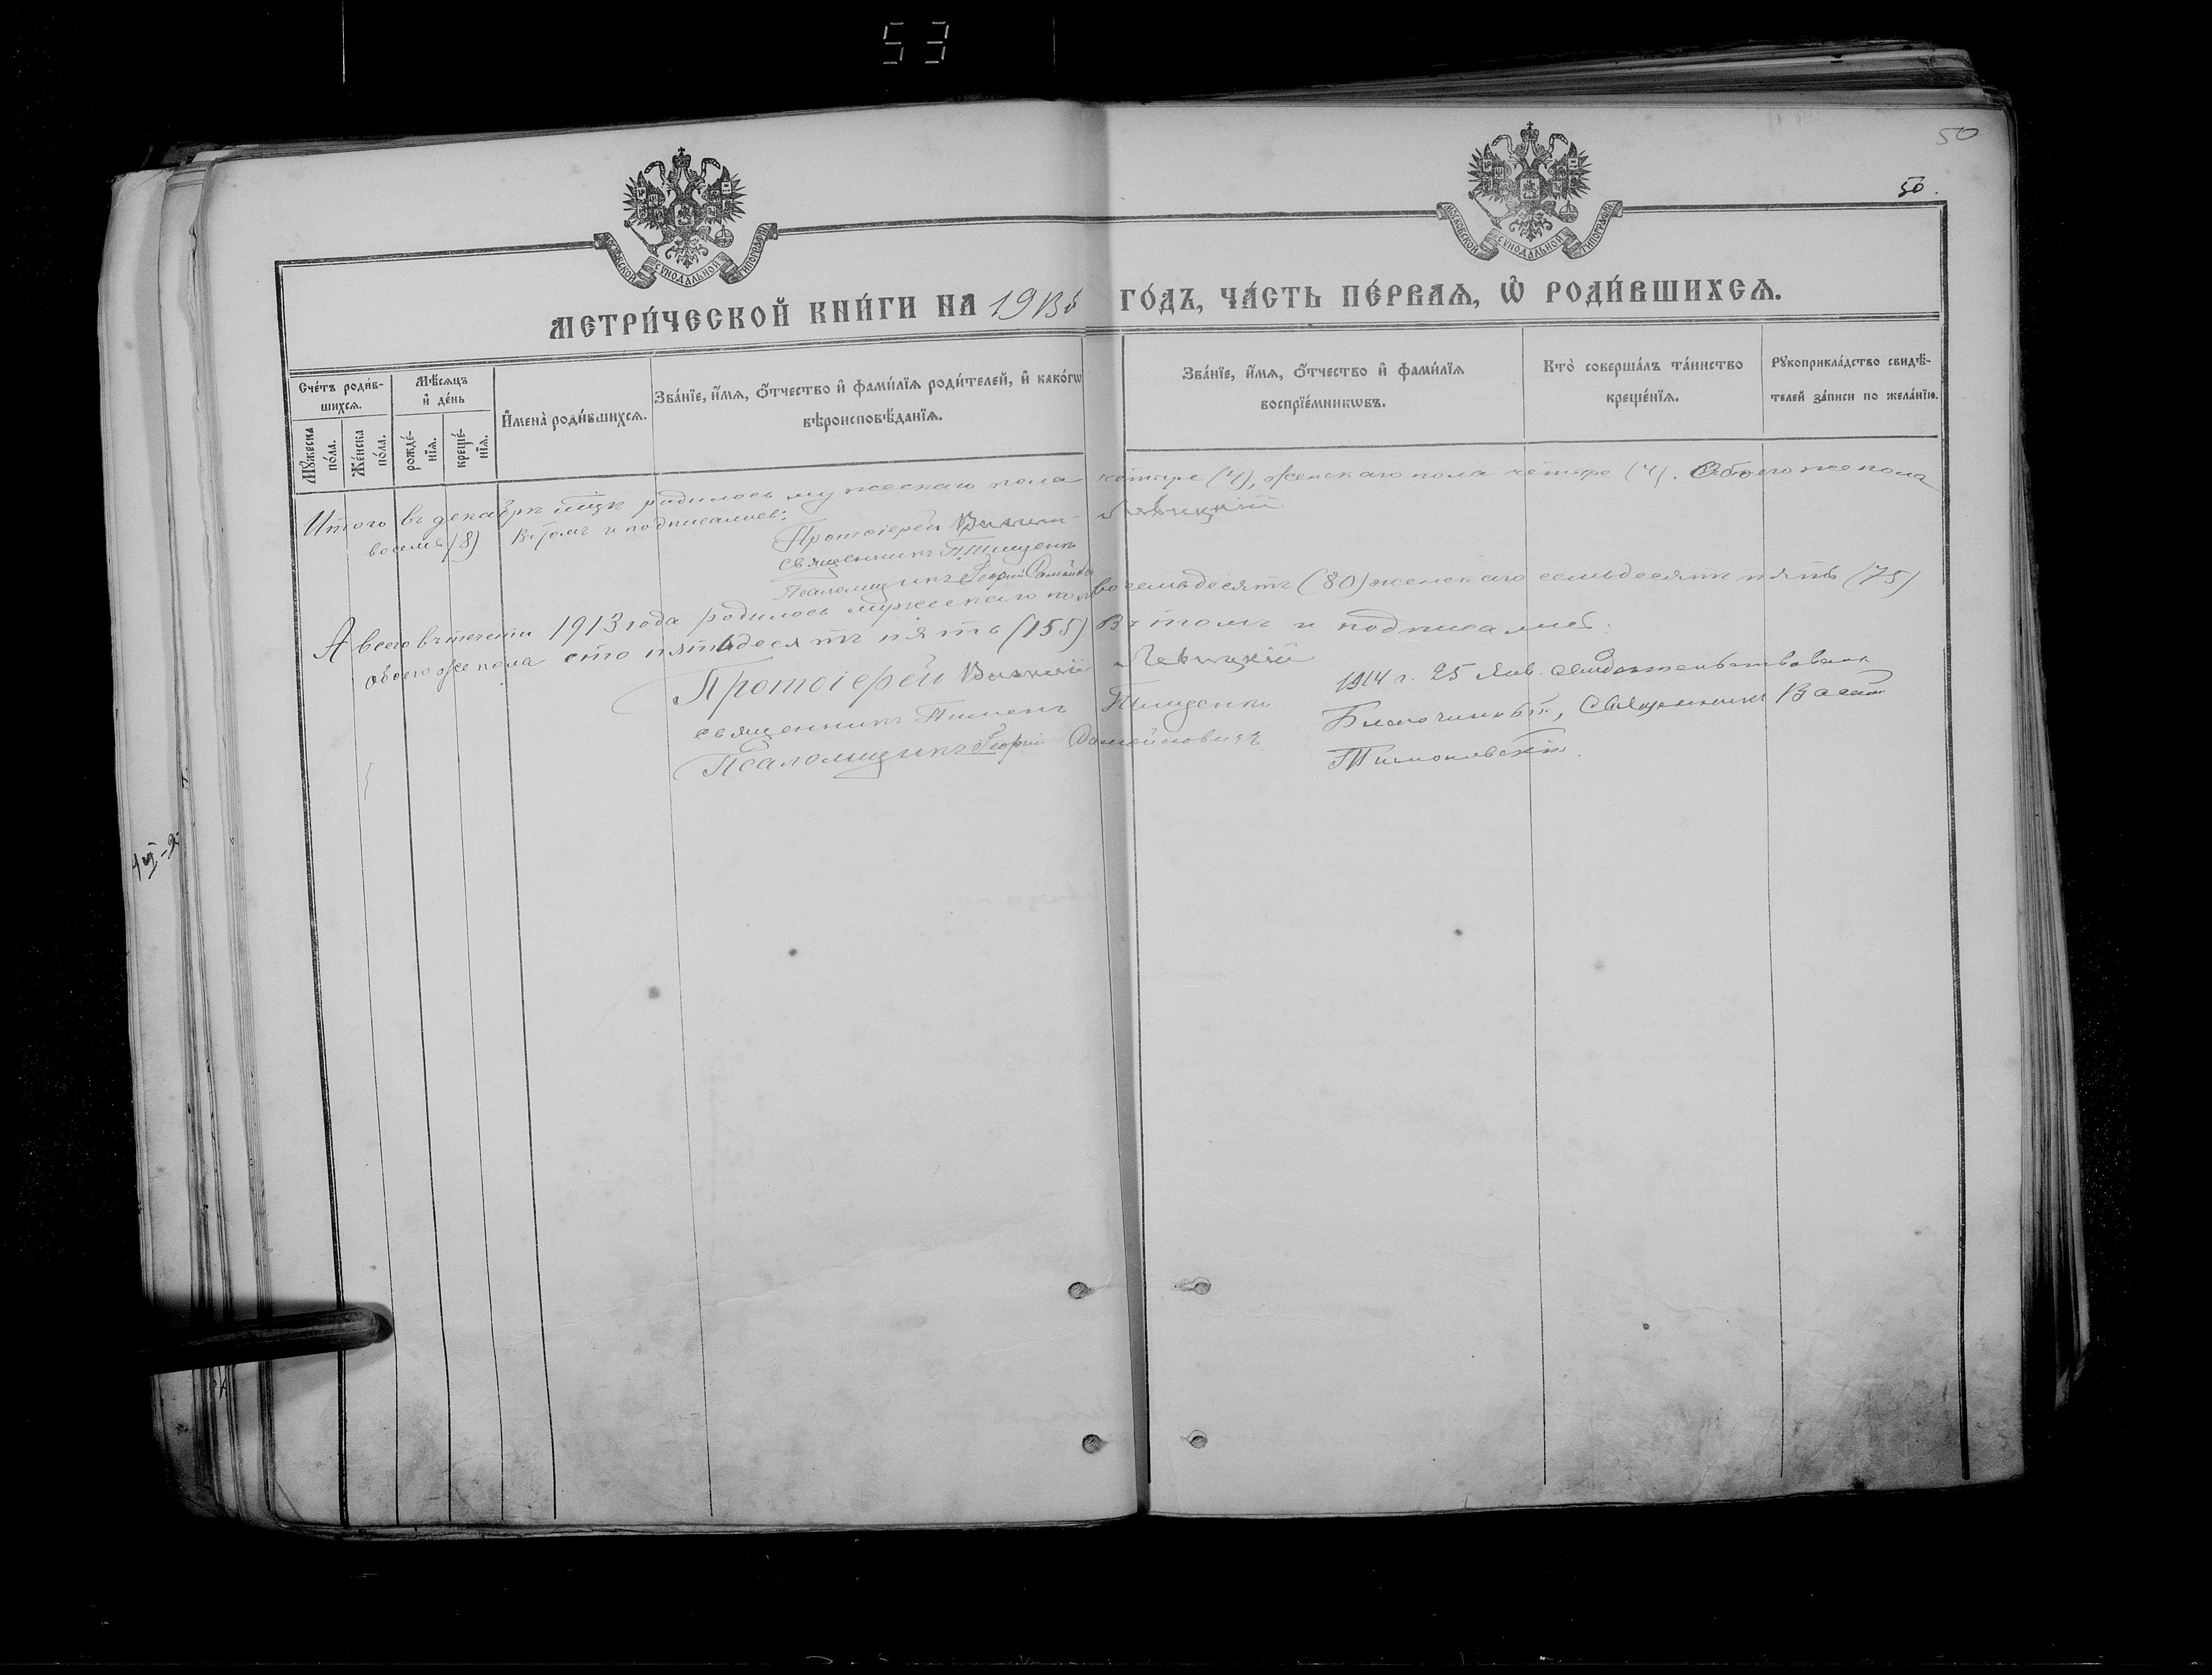 53
50
50.
МОСКОВСКОЙ СѴНОДАЛЬНОЙ ТИПОГРАФІИ
МОСКОВСКОЙ СѴНОДАЛЬНОЙ ТИПОГРАФІИ
МЕТРИ́ЧЕСКОЙ КНИ́ГИ НА 1913й ГО́ДЪ, ЧА́СТЬ ПЕ́РВАѦ, Ѡ҆ РОДИ́ВШИХСѦ.
Сче́тъ роди́в-
шихсѧ.
Мꙋ́жеска по́ла.
Же́нска по́ла.
Мѣ́сѧцъ и҆ де́нь
рожде́-
нїѧ.
креще́-
нїѧ.
И҆мена̀ роди́вшихсѧ.
Зва́нїе, и҆́мѧ, ѻ҆́тчество и҆ фами́лїѧ роди́телей, и҆ како́гѡ
вѣроисповѣ́данїѧ.
Зва́нїе, и҆́мѧ, ѻ҆́тчество и҆ фами́лїѧ
воспрїе́мникѡвъ.
Кто̀ соверша́лъ та́инство
креще́нїѧ.
Рꙋкоприкла́дство свидѣ́-
телей за́писи по жела́нїю.
Итого въ декабрѣ м-цѣ родилось мужескаго пола четыре (4), женскаго пола четыре (4). Обоего же пола
восемь (8) въ томъ и подписались:
Протоіерей Левицкій
священникъ П. Тищенко
Псаломщикъ Георгій
А всего въ теченіи 1913 года родилось мужескаго пола восемьдесятъ (80) женскаго семьдесятъ пять (75)
обоего же пола сто пятьдесятъ пять (155) Въ томъ и подписались:
Протоіерей Левицкій
священникъ Пименъ Тищенко
Псаломщикъ Георгій
1914 г. 25 Янв. свидѣтельствовалъ
Благочинный, Священникъ